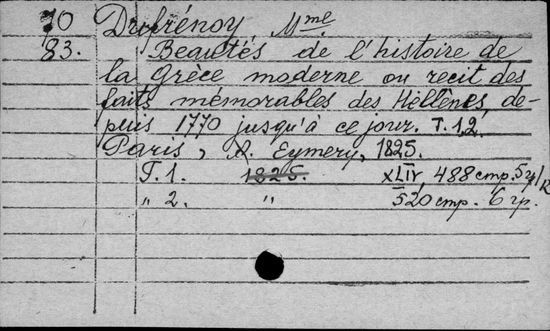 70 Dufrénoy Mme
83. Beautés de l'histoire de
la Grèce moderne ou recit des
faits mémorables des Hellènes de-
puis 1770 jusqu'à ce jour. T. 1,2.
Paris, A. Eymery, 1825.
T. 1. 1825. XLIV, 488 стр. 5
" 2. " 520 стр. 6 гр.